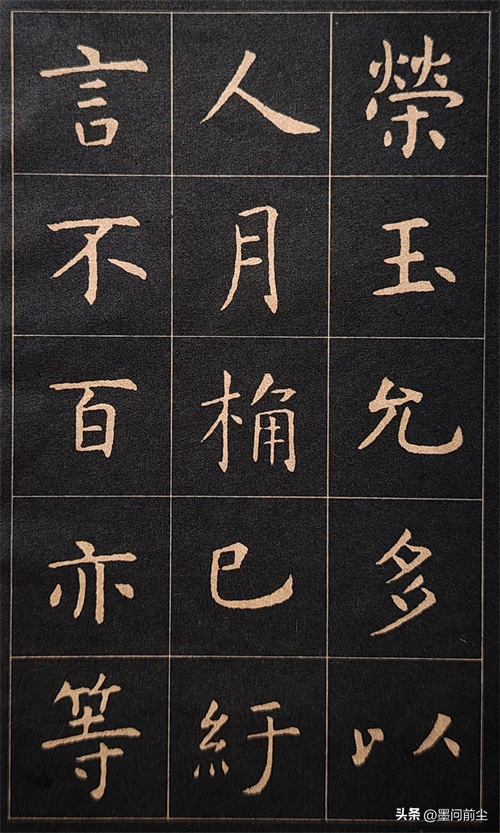 榮玉允多以
人月桷巳紆
言不百亦等
头条 @墨问前尘